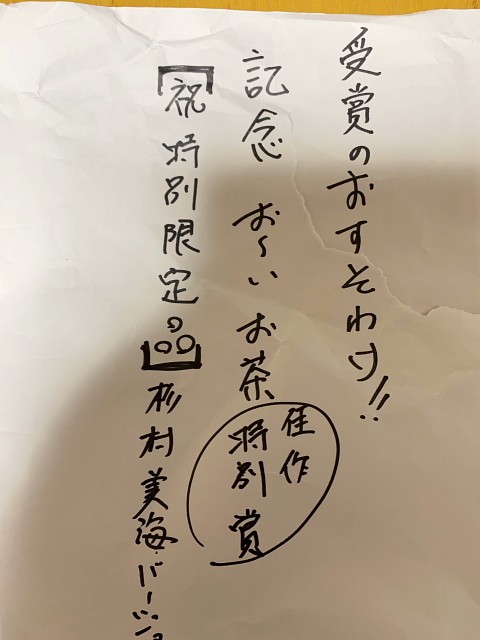 受賞のおすそわけ!!
記念 お〜いお茶
佳作
特別賞
【祝 特別限定の品】杉村美海バージョ